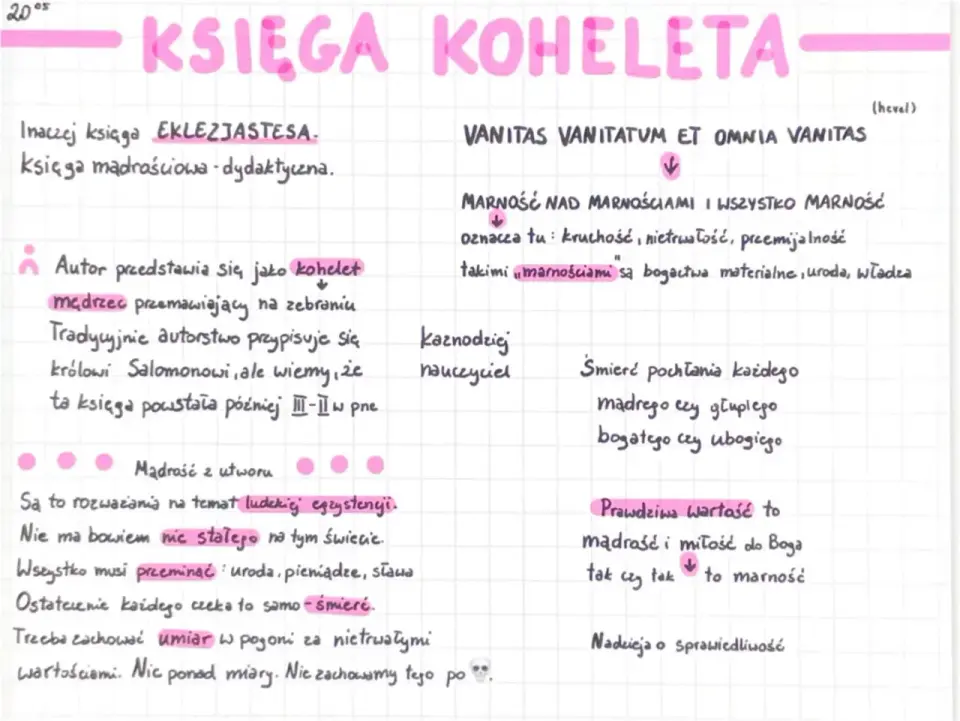 20⁰⁵
KSIĘGA KOHELETA
Inaczej księga EKLEZJASTESA.
księga mądrościowa - dydaktyczna.
Autor przedstawia się jako kohelet
mędrzec przemawiający na zebraniu
Tradycyjnie autorstwo przypisuje się
królowi Salomonowi, ale wiemy, że
ta księga powstała później III-II w pne
kaznodziej
nauczyciel
Mądrość z utworu
Są to rozważania na temat ludzkiej egzystencji.
Nie ma bowiem nic stałego na tym świecie.
Wszystko musi przeminąć : uroda, pieniądze, sława
Ostatecznie każdego czeka to samo - śmierć.
Trzeba zachować umiar w pogoni za nietrwałymi
wartościami. Nic ponad miary. Nic zachowamy tego po 💀.
(hevel)
VANITAS VANITATUM ET OMNIA VANITAS
↓
MARNOŚĆ NAD MARNOŚCIAMI I WSZYSTKO MARNOŚĆ
↓
oznacza tu : kruchość, nietrwałość, przemijalność
takimi „marnościami" są bogactwa materialne, uroda, władza
Śmierć pochłania każdego
mądrego czy głupiego
bogatego czy ubogiego
Prawdziwa wartość to
mądrość i miłość do Boga
tak czy tak ↓ to marność
Nadzieja o sprawiedliwość